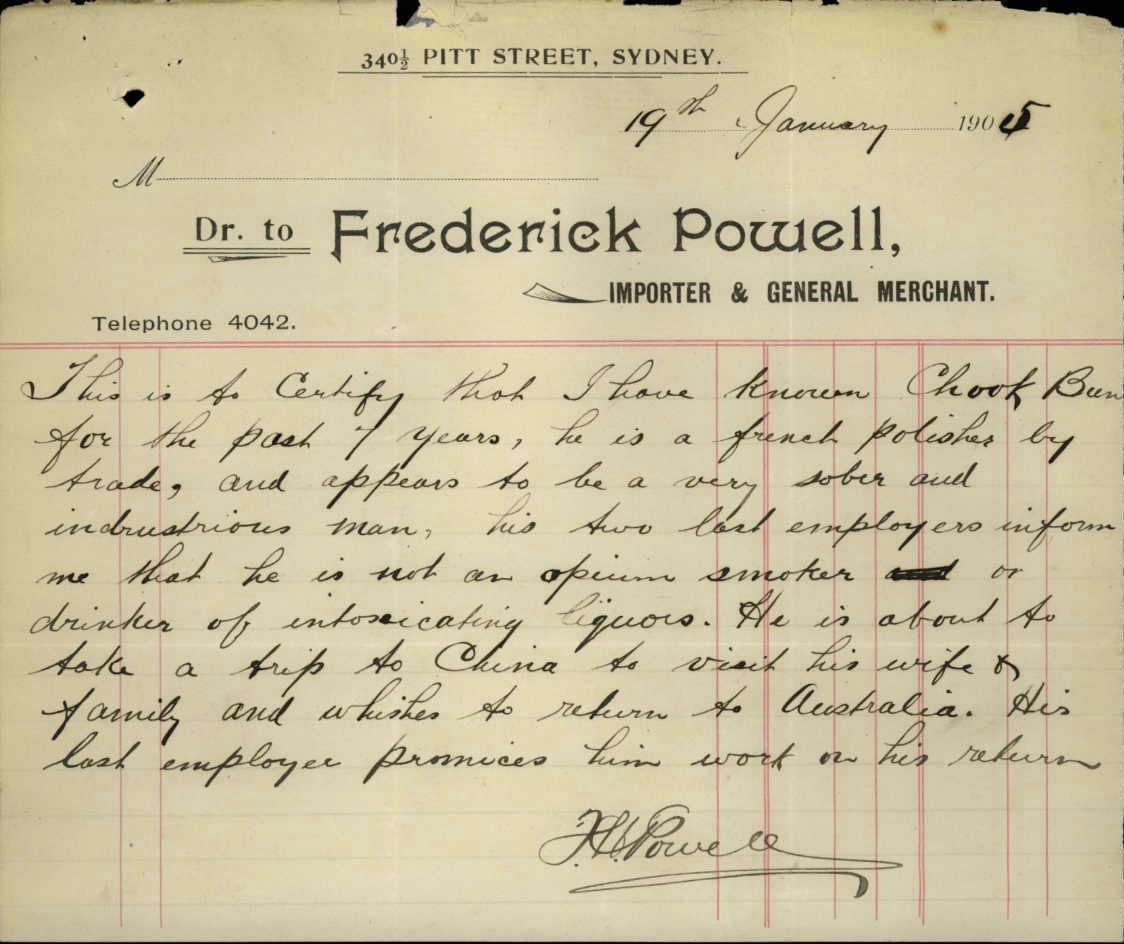 340½ PITT STREET, SYDNEY.
19th January 1905
M
Dr. to Frederick Powell,
IMPORTER & GENERAL MERCHANT.
Telephone 4042.
This is to Certify that I have known Chook Bun
for the past 7 years, he is a french polisher by
trade, and appears to be a very sober and
indrustrious man, his two last employers inform
me that he is not an opium smoker or
drinker of intoxicating liquors. He is about to
take a trip to China to visit his wife &
family and whishes to return to Australia. His
last employer promices him work on his return
F.H. Powell